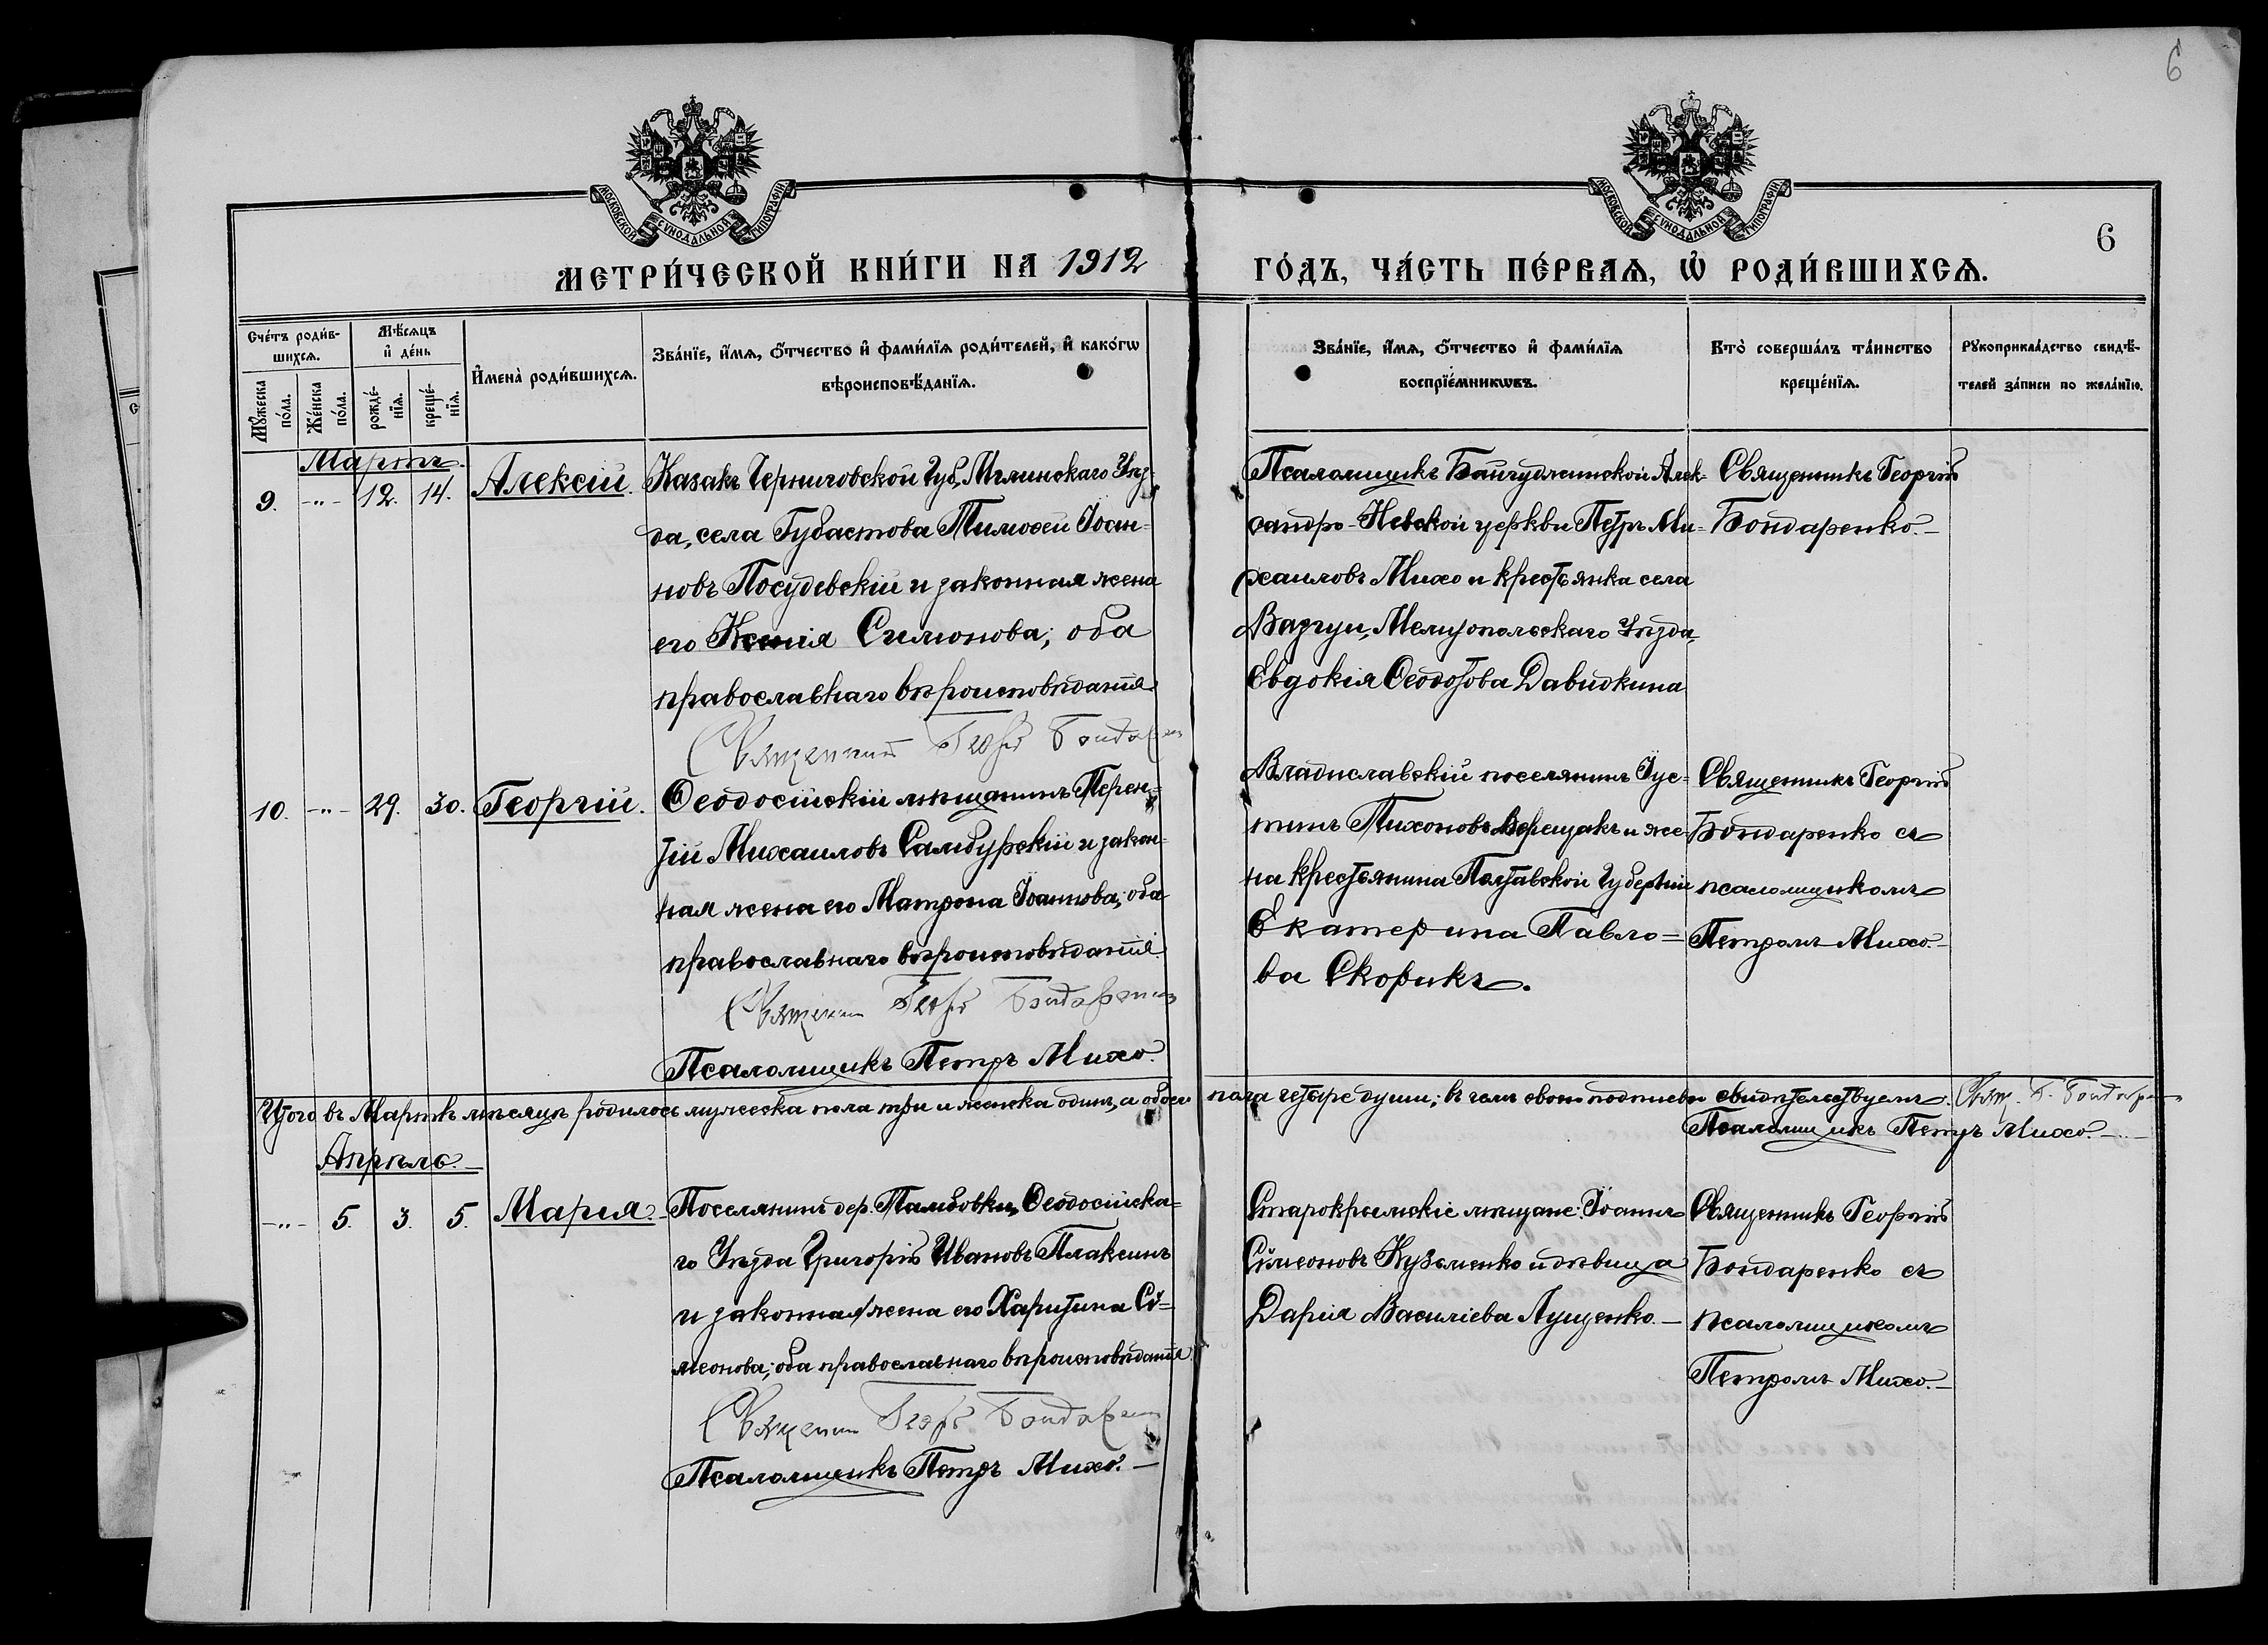 6
МОСКОВСКОЙ СѴНОДАЛЬНОЙ ТИПОГРАФІИ
МОСКОВСКОЙ СѴНОДАЛЬНОЙ ТИПОГРАФІИ
6
МЕТРИ́ЧЕСКОЙ КНИ́ГИ НА 1912 ГО́ДЪ, ЧА́СТЬ ПЕ́РВАѦ, Ѡ҆ РОДИ́ВШИХСѦ.
Сче́тъ роди́в-
шихсѧ.
Мꙋ́жеска
по́ла.
Же́нска
по́ла.
Мѣ́сѧцъ
и҆ де́нь
рожде́-
нїѧ.
креще́-
нїѧ.
И҆мена̀ роди́вшихсѧ.
Зва́нїе, и҆́мѧ, ѻ҆́тчество и҆ фами́лїѧ роди́телей, и҆ како́гѡ
вѣроисповѣ́данїѧ.
Зва́нїе, и҆́мѧ, ѻ҆́тчество и҆ фами́лїѧ
воспрїе́мникѡвъ.
Кто̀ соверша́лъ та́инство
креще́нїѧ.
Рꙋкоприкла́дство свидѣ́-
телей за́писи по жела́нїю.
Мартъ.
9. -"- 12. 14. Алексій.
Казакъ Черниговской Губ. Мглинскаго Уѣз-
да, села Губастова Тимоѳей Іоан-
новъ Посудевскій и законная жена
его Ксенія Симонова; оба
православнаго вѣроисповѣданія
Священникъ Георгій Бондаренко
Псаломщикъ Байгудженской Алек-
сандро-Невской церкви Петръ Ми-
хаиловъ Михо и крестьянка села
Мелитопольскаго Уѣзда,
Евдокія Ѳеодотова Давидкина
Священникъ Георгій
Бондаренко.-
10. -"- 29. 30. Георгій.
Ѳеодосійскій мѣщанинъ Терен-
тій Михаиловъ Самбурскій и закон-
ная жена его Матрона Іоаннова; оба
православнаго вѣроисповѣданія.
Священникъ Георгій Бондаренко
Псаломщикъ Петръ Михо.
Владиславскій поселянинъ Іус-
тинъ Тихоновъ Верещакъ и же-
на крестьянина Полтавской Губерніи
Екатерина Павло=
ва Скорикъ.
Священникъ Георгій
Бондаренко съ
псаломщикомъ
Петромъ Михо.-
Итого въ Мартѣ мѣсяцѣ родилось мужеска пола три и женска одинъ, а обоего пола четыре души; въ чемъ своею подписью свидѣтельствуемъ. Свящ. Г. Бондаренко
Псаломщикъ Петръ Михо.-"-
Апрѣль.-
-"- 5. 3. 5. Марія.-
Поселянинъ дер. Тамбовки, Ѳеодосійска-
го Уѣзда Григорій Ивановъ Плаксинъ
и законная жена его Харитина Сѵ=
меонова; оба православнаго вѣроисповѣданія.
Священникъ Георгій Бондаренко
Псаломщикъ Петръ Михо.-
Старокрымскіе мѣщане: Іоаннъ
Сѵмеоновъ Кузьменко и дѣвица
Дарія Василіева Лущенко.-
Священникъ Георгій
Бондаренко съ
псаломщикомъ
Петромъ Михо.-